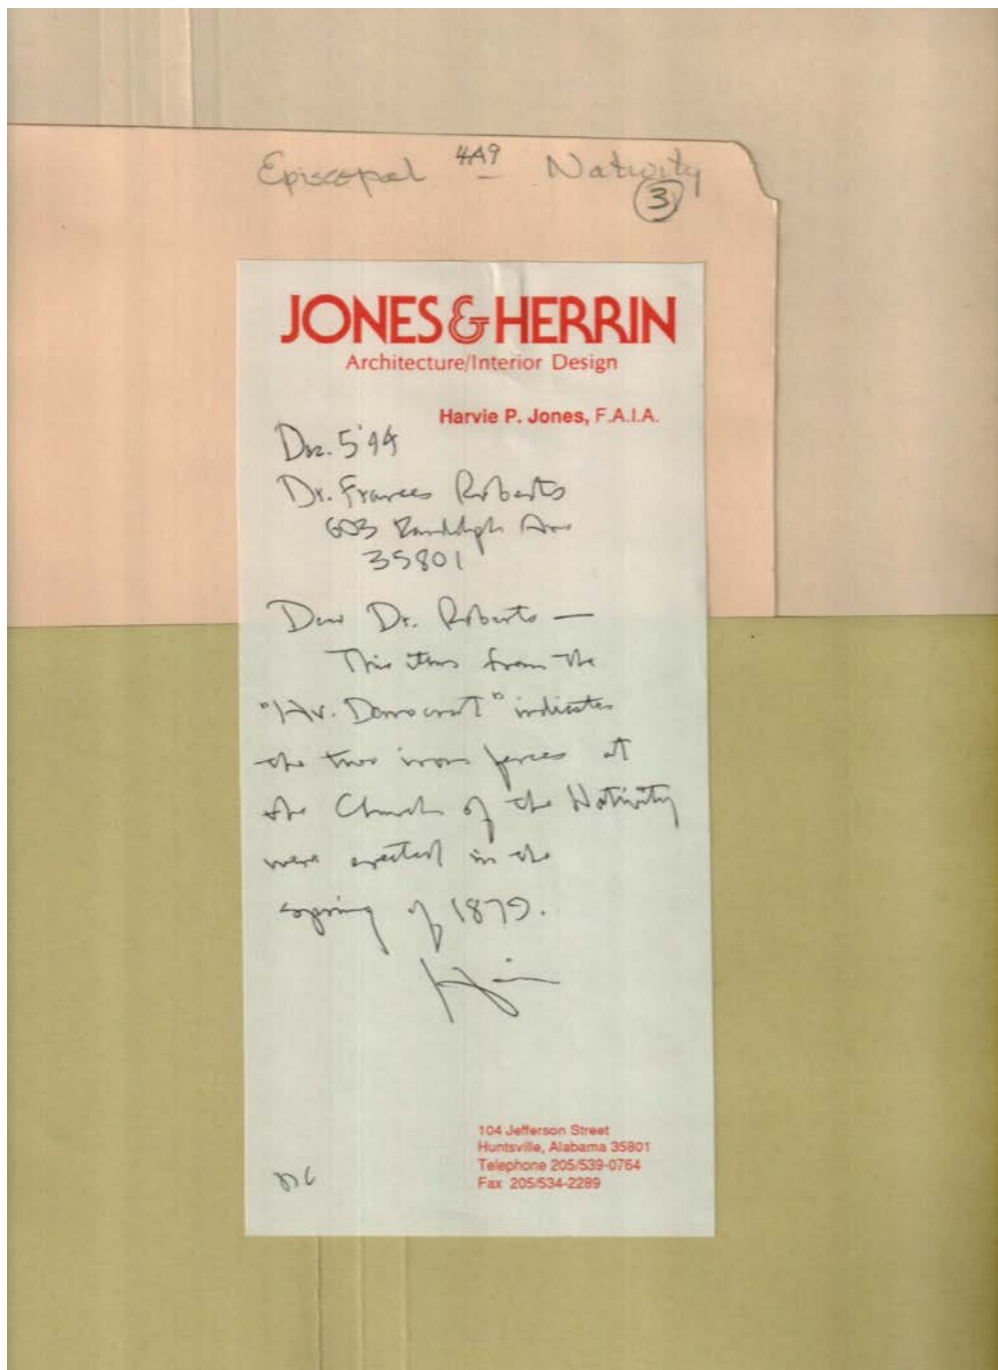 Episcopal 4A9 Nativity
3
JONES & HERRIN
Architecture/Interior Design
Harvie P. Jones, F.A.I.A.
Dec. 5 '94
Dr. Frances Roberts
603 Randolph Ave
35801
Dear Dr. Roberts —
This item from the
"Hv. Democrat" indicates
the two iron fences at
the Church of the Nativity
were erected in the
spring of 1879.
104 Jefferson Street
Huntsville, Alabama 35801
Telephone 205/539-0764
Fax 205/534-2289